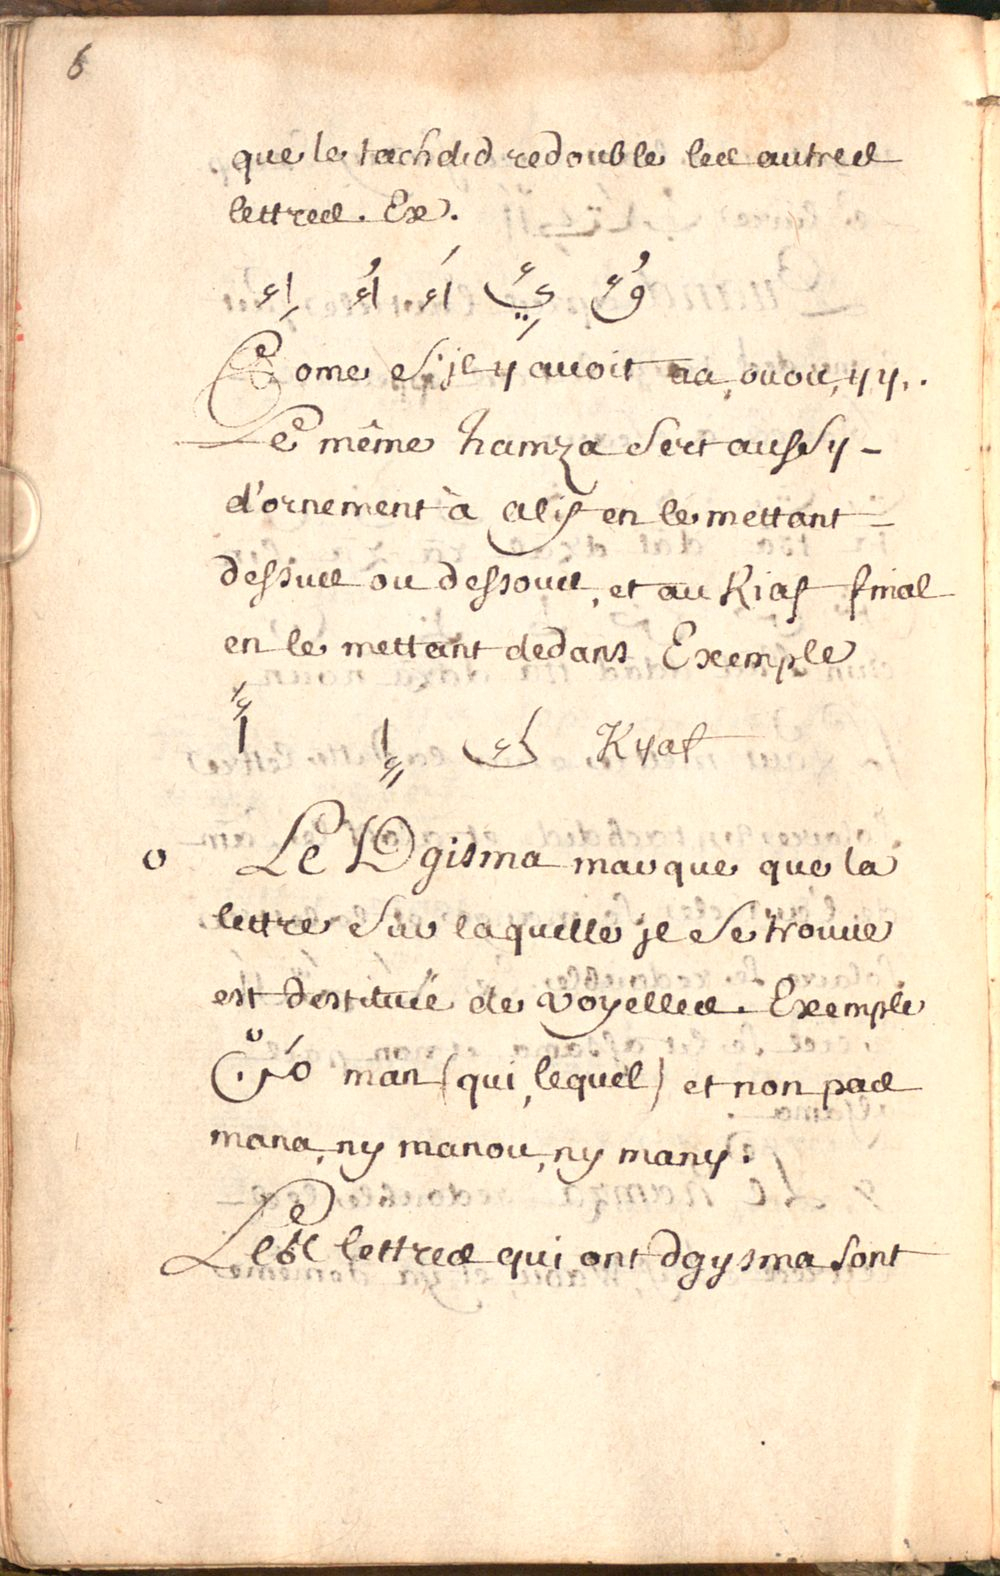 6
que le tachdid redouble les autres
lettres. Ex.
اِء اُء اَء يِّ وُء
Come s'jl y avoit aa, ouou, yy,.
Le même hamza sert aussy -
d'ornement à alif en le mettant -
dessus ou dessous, et au Kiaf final
en le mettant dedans Exemple
أ إ ك Kyaf
o Le Dgisma marque que la
lettre sur laquelle jl se trouve
est destituée de voyelles. Exemple
مَنْ man (qui, lequel) et non pas
mana, ny manou, ny many.
Les lettres qui ont dgysma sont